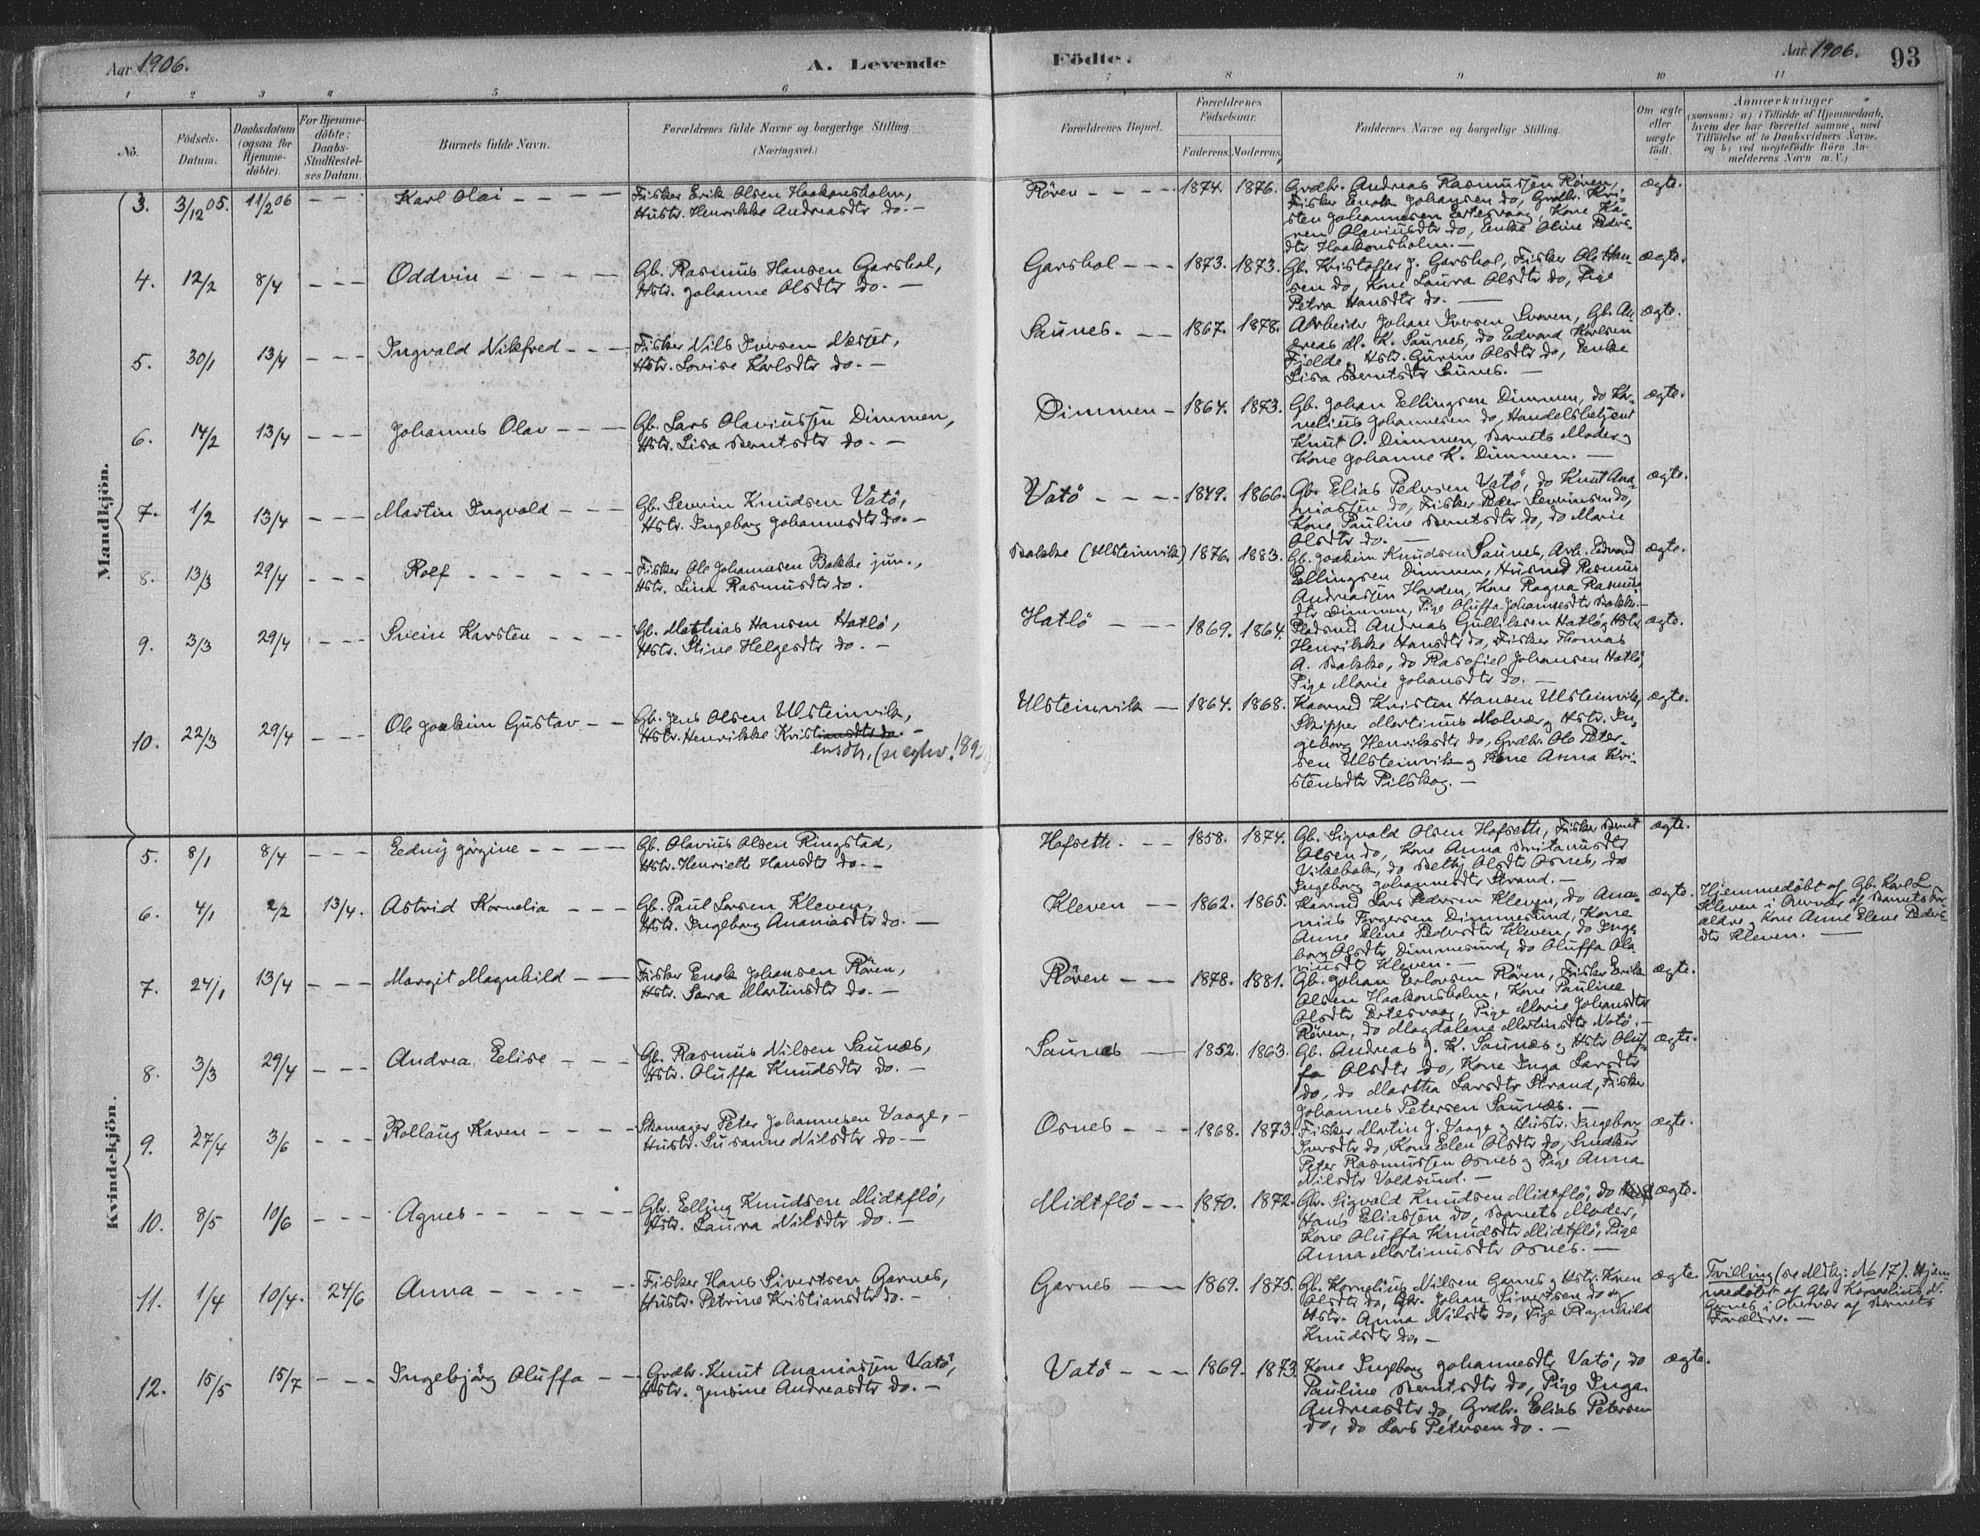 Aar 1906. A. Levende Födte. Aar 1906. 93
1 2 3 4 5 6 7 8 9 10 11
No.
Födsels-
Datum.
Daabsdatum
(ogsaa for
Hjemme-
döbte).
For Hjemme-
döbte:
Daabs-
Stadfæstel-
ses Datum.
Barnets fulde Navn.
Forældrenes fulde Navne og borgerlige Stilling
(Næringsvei.)
Forældrenes Bopæl.
Forældrenes
Födselsaar.
Faderens. Moderens.
Faddernes Navne og borgerlige Stilling.
Om ægte
eller
uægte
födt.
Anmærkninger
(saasom: a) i Tilfælde af Hjemmedaab,
hvem der har forrettet samme, med
Tilföielse af to Daabsvidners Navne,
og b) ved uægtefödte Börn An-
melderens Navn m. V.)
Mandkjön.
3. 3/12 05. 11/2 06 - - - Karl Olai - - -
Fisker Erik Olsen Haakonsholm,
Hustr. Henrikke Andreasdtr do. -
Rören - - - - 1874. 1876.
Grdbr. Andreas Rasmussen Rören,
Fisker Enok Johansen do, Grdbr. Kri-
sten Johannesen Ertesvaag, Kone Ka-
ren Olaviusdtr do, Enke Oline Peders-
dtr Haakonsholm. -
ægte.
4. 12/2 8/4 - - - Oddvin - - - -
Gb. Rasmus Hansen Garshol,
Hstr. Johanne Olsdtr do. -
Garshol - - - 1873. 1873.
Gb. Kristoffer J. Garshol, Fisker Ole Han-
sen do, Kone Laura Olsdtr do, Pige
Petra Hansdtr do. -
ægte.
5. 30/1 13/4 - - - Ingvald Nikfred - - -
Fisker Nils Iversen Nesset,
Hstr. Lovise Karlsdtr do. -
Saunes. - - 1867. 1878.
Arbeider Johan Iversen Svoren, Gb. An-
dreas M. K. Saunes, do Edvard Karlsen
Fjelde, Hstr. Gurine Olsdtr do, Enke
Lisa Berntsdtr Saunes. -
ægte.
6. 14/2 13/4 - - - Johannes Olav - - -
Gb. Lars Olaviussen Dimmen,
Hstr. Lisa Berntsdtr do. -
Dimmen - 1864. 1873.
Gb. Johan Ellingsen Dimmen, do Kor-
nelius Johannesen do, Handelsbetjent
Knut O. Dimmen, Barnets Moder og
Kone Johanne K. Dimmen. -
ægte.
7. 1/2 13/4 - - - Martin Ingvald - - -
Gb. Severin Knudsen Vatö,
Hstr. Ingeborg Johannesdtr do. -
Vatö - - - - 1849. 1866.
Gbr Elias Pedersen Vatö, do Knut Ana-
niassen do, Fisker Peder Severinsen do,
Kone Pauline Berntsdtr do, do Marie
Olsdtr do. -
ægte.
8. 13/3 29/4 - - - Rolf - - - - - -
Fisker Ole Johannesen Bakke jun.,
Hstr. Lina Rasmusdtr do.
Bakke (Ulsteinvik) 1876. 1883.
Gb. Joakim Knudsen Saunes, Arb. Edvard
Ellingsen Dimmen, Husmd Rasmus
Andreassen Havden, Kone Ragna Rasmus-
dtr Dimmen, Pige Oluffa Johannesdtr Bakke. -
ægte.
9. 3/3 29/4 - - - Svein Karsten - - - -
Gb. Mathias Hansen Hatlö,
Hstr. Stine Helgesdtr do. -
Hatlö - - - 1869. 1864.
Pladsmd Andreas Gulliksen Hatlö og Hstr
Henrikke Hansdtr do, Fisker Thomas
A. Bakke, do Rasofiel Johansen Hatlö,
Pige Marie Johansdtr do. -
ægte.
10. 22/3 29/4 - - - Ole Joakim Gustav - -
Gb. Jens Olsen Ulsteinvik,
Hstr. Henrikke Kristiansdtr do. -
ensdtr. (se egtev. 189
Ulsteinvik - 1864. 1868.
Kaarmd Kristen Hansen Ulsteinvik,
Skipper Martinus Molvær og Hstr. In-
geborg Henriksdtr do, Grdbr. Ole Peter-
sen Ulsteinvik og Kone Anna Kri-
stensdtr Pilskog. -
ægte.
Kvindekjön.
5. 8/1 8/4 - - - Eedny Jörgine - - - -
Gb. Olavius Olsen Ringstad,
Hstr. Henriette Hansdtr do. -
Hofseth. - - 1858. 1874.
Gb. Sigvald Olsen Hofseth, Fisker Bernt
Olsen do, Kone Anna Kristansdtr
Vikebak, do Bethy Olsdtr Osnes, do
Ingeborg Johannesdtr Strand. -
ægte.
6. 4/1 2/2 13/4. Astrid Kornelia - - -
Gb. Paul Larsen Kleven,
Hstr. Ingeborg Ananiasdtr do. -
Kleven - - 1862. 1865.
Kaarmd Lars Pedersen Kleven, do Ana-
nias Torgersen Dimmesund, Kone
Anne Elene Pedersdtr Kleven, do Inge-
borg Olsdtr Dimmesund, do Oluffa Ola-
viusdtr Kleven. -
ægte.
Hjemmedöbt af Gb. Karl L.
Kleven i Overvær af Barnets For-
ældre og Kone Anne Elene Peders-
dtr Kleven. -
7. 24/1 13/4 - - - Margit Magnhild - -
Fisker Enok Johansen Rören,
Hstr. Sara Martinsdtr do. -
Rören - - - 1878. 1881.
Gb. Johan Erlovsen Rören, Fisker Erik
Olsen Haakonsholm, Kone Pauline
Olsdtr Ertesvaag, Pige Marie Johansdtr
Rören, do Magdalene Martinsdtr Vatö. -
ægte.
8. 3/3 29/4 - - - Andrea Eelise - - -
Gb. Rasmus Nilsen Saunes,
Hstr. Oluffa Knudsdtr do. -
Saunes - 1852. 1863.
Gb. Andreas J. K. Saunæs og Hstr Oluf-
fa Olsdtr do, Kone Inga Larsdtr
do, do Martha Larsdtr Strand, Fisker
Johannes Petersen Saunæs. -
ægte.
9. 27/4 3/6 - - - Rollaug Karen - - - -
Skomager Peter Johannesen Vaage, -
Hustr. Susanne Nilsdtr do. -
Osnes - - - 1868. 1873.
Fisker Martin J. Vaage og Hustr. Ingeborg
Iversdtr do, Kone Elen Olsdtr do, Snedker
Peter Rasmussen Osnes og Pige Anna
Nilsdtr Voldsund. -
ægte.
10. 8/5 10/6 - - - Agnes - - - - - -
Gbr. Elling Knudsen Midtflö,
Hstr. Laura Nilsdtr do. -
Midtflö - - - 1870. 1872.
Gbr. Sigvald Knudsen Midtflö, do
Hans Eliassen do, Barnets Moder,
Kone Oluffa Knudsdtr Midtflö, Pige
Anna Martinusdtr Osnes. -
ægte.
11. 1/4 10/4. 24/6 Anna - - - - -
Fisker Hans Sivertsen Garnes,
Hustr. Petrine Kristiansdtr do. -
Garnes - - - 1869. 1875.
Gb. Kornelius Nilsen Garnes og Hstr. Karen
Olsdtr do, Gbr. Johan Sivertsen do og
Hstr. Anna Nilsdtr do, Pige Ragnhild
Knudsdtr do. -
ægte.
Tvilling (se Mkj: No 17). Hjem-
medöbt af Gbr Kornelius N.
Garnes i Overvær af Barnets
Forældre. -
12. 15/5 15/7 - - - Ingebjörg Oluffa - -
Grdbr. Knut Ananiassen Vatö,
Hstr. Jensine Andreasdtr do. -
Vatö - - - 1869. 1873.
Kone Ingeborg Johannesdtr Vatö, do
Pauline Berntsdtr do, Pige Inga
Andreasdtr do, Grdbr. Elias Petersen
do, do Lars Petersen do. -
ægte.